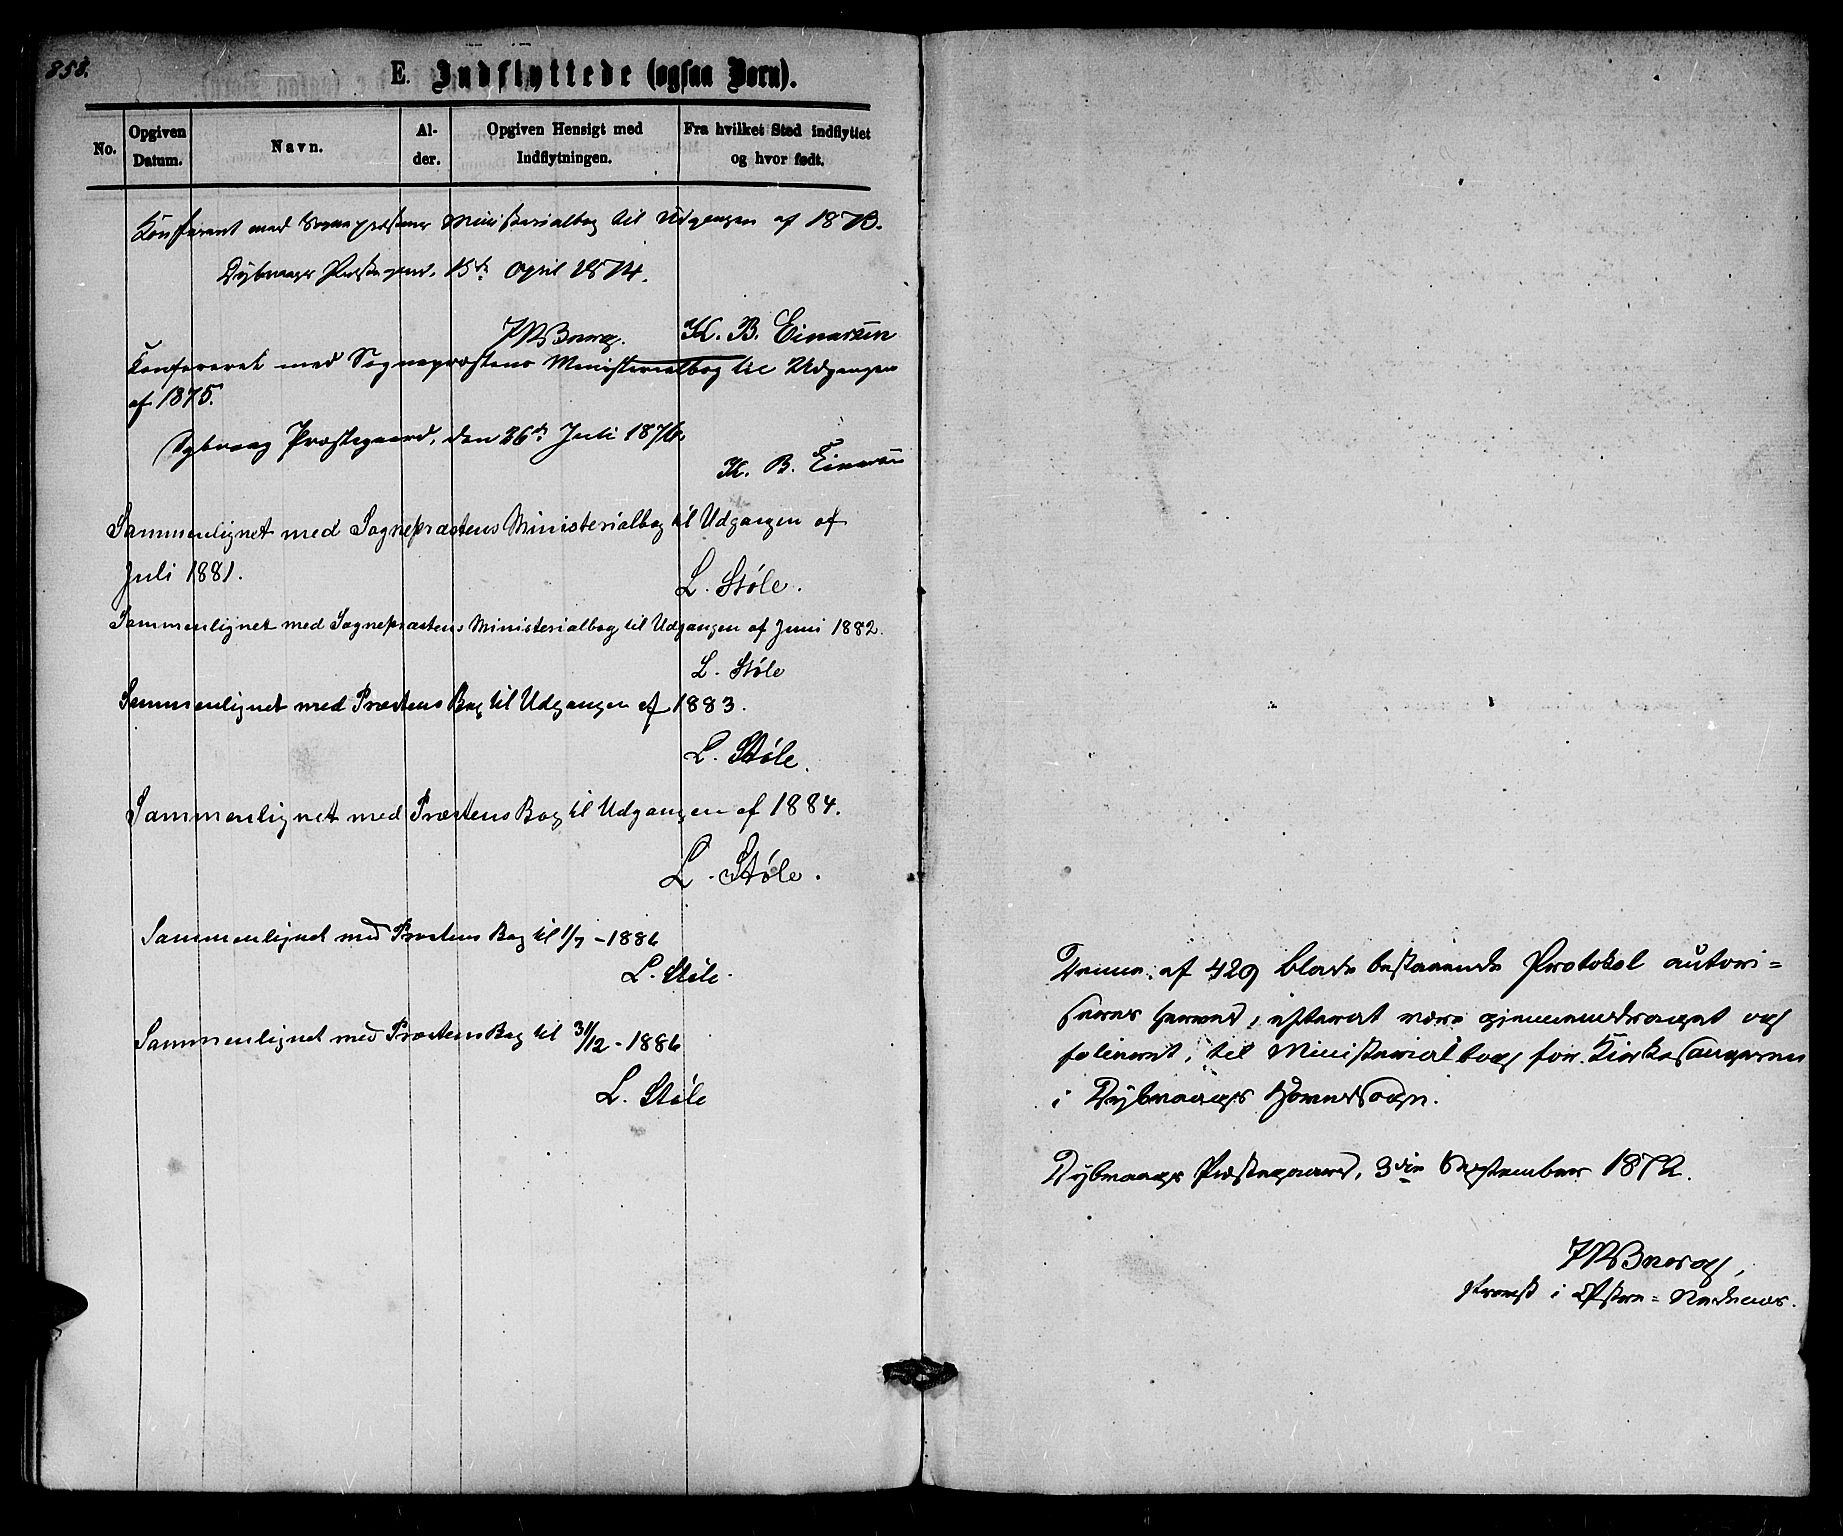 858.
E. Indflyttede (ogsaa Børn).
No.
Opgiven Datum.
Navn.
Al-der.
Opgiven Hensigt med Indflytningen.
Fra hvilket Sted indflyttet og hvor født.
Konfereret med Sognepræstens Ministerialbog til Udgangen af 1873.
Dybvaags Præstegaard, 15de April 1874.
K. B. Einarsen
Konfereret med Sognepræstens Ministerialbog til Udgangen
af 1875.
Dybvaag Præstegaard, den 26de Juli 1876
K. B. Einarsen
Sammenlignet med Sognepræstens Ministerialbog til Udgangen af
Juli 1881.
L. Støle.
Sammenlignet med Sognepræstens Ministerialbog til Udgangen af Juni 1882.
L. Støle
Sammenlignet med Præstens Bog til Udgangen af 1883.
L. Støle.
Sammenlignet med Præstens Bog til Udgangen af 1884.
L. Støle.
Sammenlignet med Præstens Bog til 1/7 - 1886
L. Støle.
Sammenlignet med Præstens Bog til 31/12 - 1886
L. Støle
Denne, af 429 Blade bestaaende Protokol autori=
seres herved, efterat være gjennemdraget og
folieret, til Ministerialbog for Kirkesangeren
i Dybvaags Hovedsogn.
Dybvaags Præstegaard, 3die September 1872.
Provst i Østre=Nedenæs.